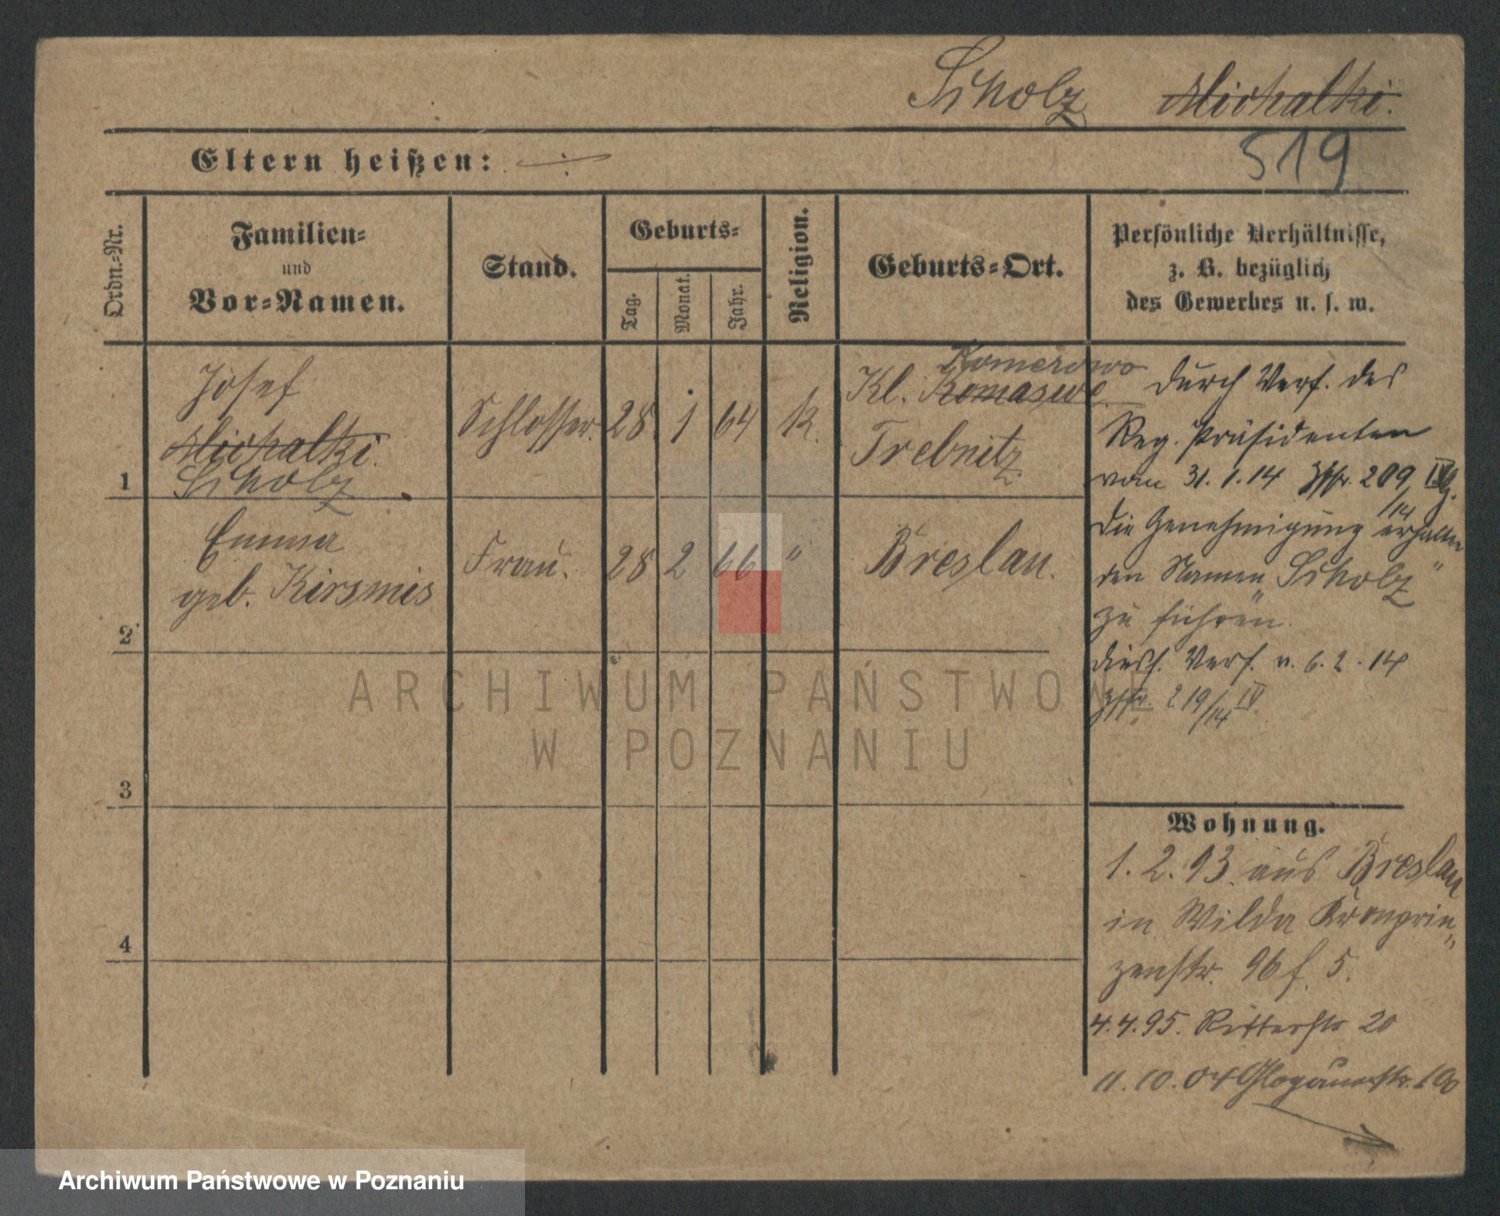 Scholz Michalki.
519
Eltern heißen:
Ordn.-Nr.
Familien-
und
Vor-Namen.
Stand.
Geburts-
Tag.
Monat.
Jahr.
Religion.
Geburts-Ort.
Persönliche Verhältnisse,
z. B. bezüglich
des Gewerbes u. s. w.
1
Josef
Michalki.
Scholz
Schlosser.
28
1
64
K.
Komerowo
Kl. Komasewe
Trebnitz
2
Emma
geb. Kirsmis
Frau.
28
2
66
"
Breslau.
3
4
Durch Verf. des
Reg. Präsidenten
vom 31.1.14
die Genehmigung erhalten
den Namen "Scholz"
zu führen.
diess. Verf. v. 6.2.14
219/14 IV.
Wohnung.
1.2.93. aus Breslau
in Wilda Kronprin-
zenstr. 96 f. 5.
4.4.95. Ritterstr 20
11.10.04 Glogauerstr.
ARCHIWUM PAŃSTWOWE
W POZNANIU
Archiwum Państwowe w Poznaniu